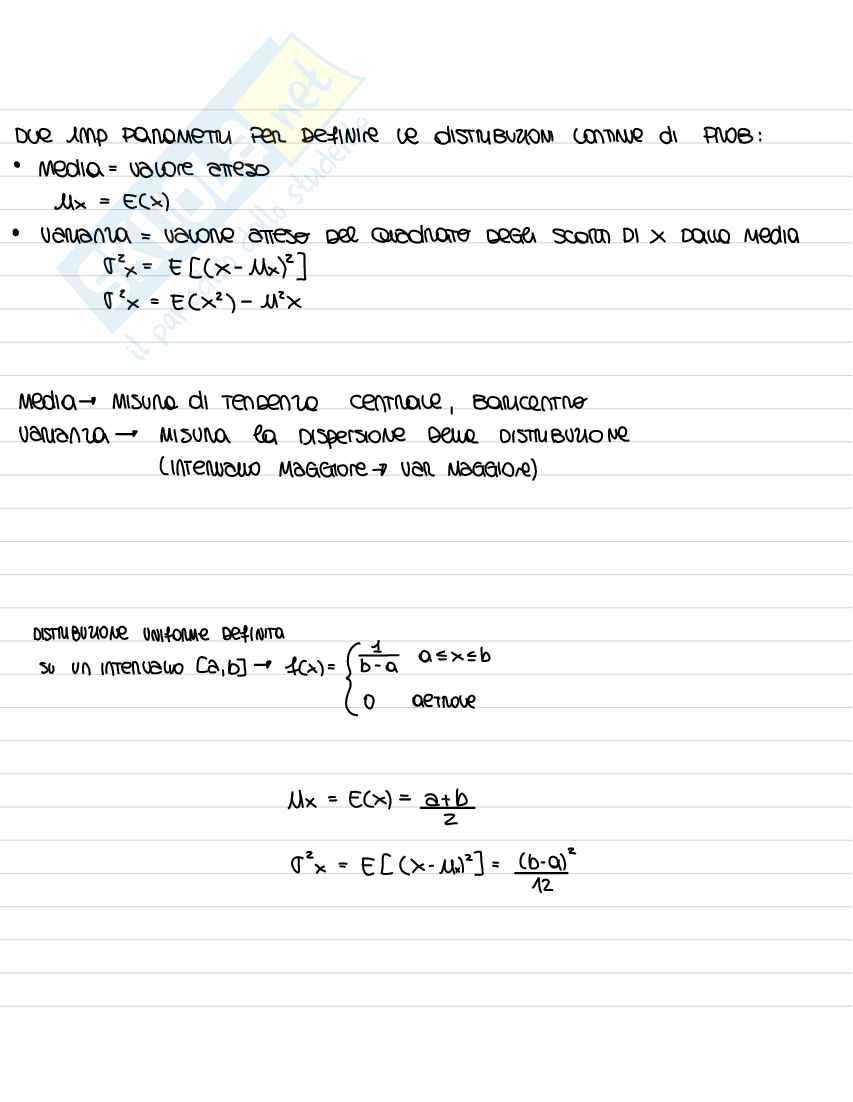 DUE IMP PARAMETRI PER DEFINIRE LE DISTRIBUZIONI CONTINUE di PROB:
• MEDIA = VALORE ATTESO
μx = E(x)
• VARIANZA = VALORE ATTESO DEL QUADRATO DEGLI SCARTI DI X DALLA MEDIA
σ²x = E[(x-μx)²]
σ²x = E(x²) - μ²x
MEDIA → MISURA di TENDENZA CENTRALE, BARICENTRO
VARIANZA → MISURA la DISPERSIONE DELLA DISTRIBUZIONE
(INTERVALLO MAGGIORE → VAR MAGGIORE)
DISTRIBUZIONE UNIFORME DEFINITA
SU UN INTERVALLO [a,b] → f(x) = { 1/(b-a) a≤x≤b
0 ALTROVE
μx = E(x) = (a+b)/2
σ²x = E[(x-μx)²] = (b-a)²/12
SKUOLA.net
il paradiso dello studente